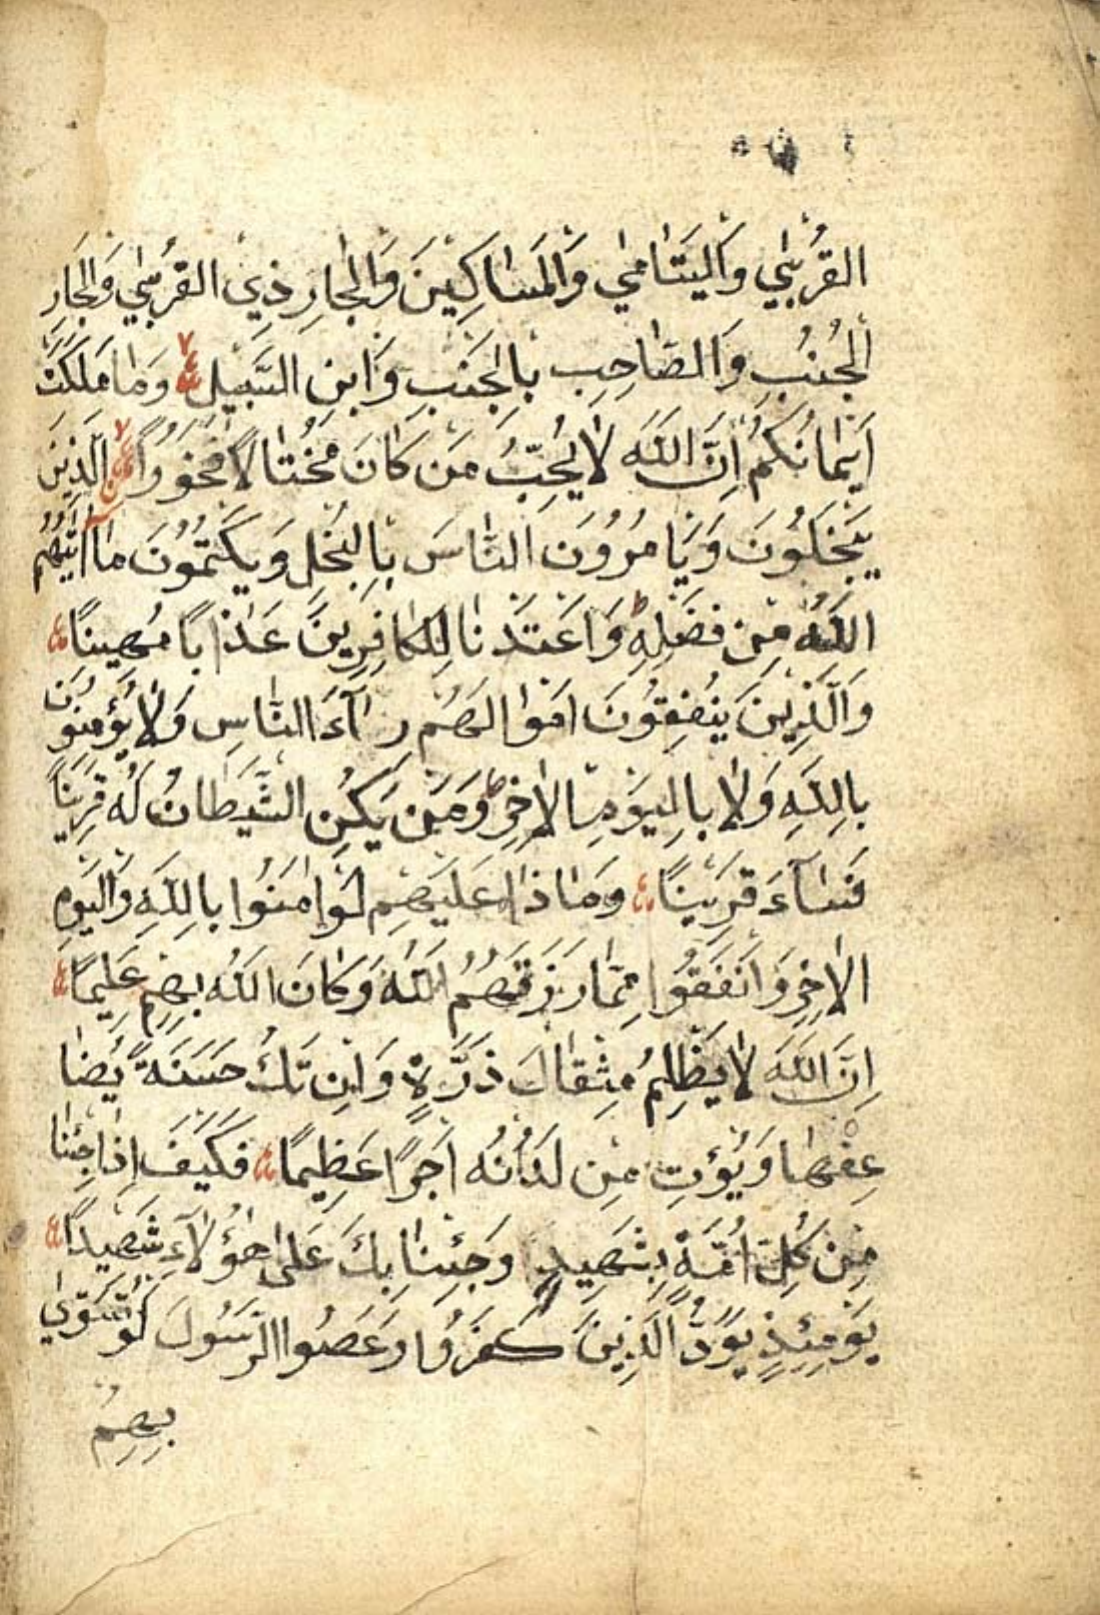 القُرْبٰي وَاليَتَامٰي وَالمَسَاكِينَ وَالجَارِ ذِي القُرْبٰي وَالجَارِ
الجُنُبِ وَالصَّاحِبِ بِالجَنْبِ وَابْنِ السَّبِيلِ وَمَا مَلَكَتْ
اَيْمَانُكُمْ اِنَّ اللَّهَ لَا يُحِبُّ مَنْ كَانَ مُخْتَالًا فَخُورًا الَّذِينَ
يَبْخَلُونَ وَيَامُرُونَ النَّاسَ بِالبُخْلِ وَيَكْتُمُونَ مَا اٰتٰيهُمُ
اللَّهُ مِنْ فَضْلِهِ وَاَعْتَدْنَا لِلكَافِرِينَ عَذَابًا مُهِينًا
وَالَّذِينَ يُنْفِقُونَ اَمْوَالَهُمْ رِاٰۤءَ النَّاسِ وَلَا يُؤْمِنُونَ
بِاللَّهِ وَلَا بِاليَوْمِ الاٰخِرِ وَمَنْ يَكُنِ الشَّيْطَانُ لَهُ قَرِينًا
فَسَاۤءَ قَرِينًا وَمَاذَا عَلَيْهِمْ لَوْ اٰمَنُوا بِاللَّهِ وَاليَوْمِ
الاٰخِرِ وَاَنْفَقُوا مِمَّا رَزَقَهُمُ اللَّهُ وَكَانَ اللَّهُ بِهِمْ عَلِيمًا
اِنَّ اللَّهَ لَا يَظْلِمُ مِثْقَالَ ذَرَّةٍ وَاِنْ تَكُ حَسَنَةً يُضَا
عِفْهَا وَيُؤْتِ مِنْ لَدُنْهُ اَجْرًا عَظِيمًا فَكَيْفَ اِذَا جِئْنَا
مِنْ كُلِّ اُمَّةٍ بِشَهِيدٍ وَجِئْنَا بِكَ عَلٰى هٰؤُلَاۤءِ شَهِيدًا
يَوْمَئِذٍ يَوَدُّ الَّذِينَ كَفَرُوا وَعَصَوُا الرَّسُولَ لَوْ تُسَوّٰي
بِهِمُ